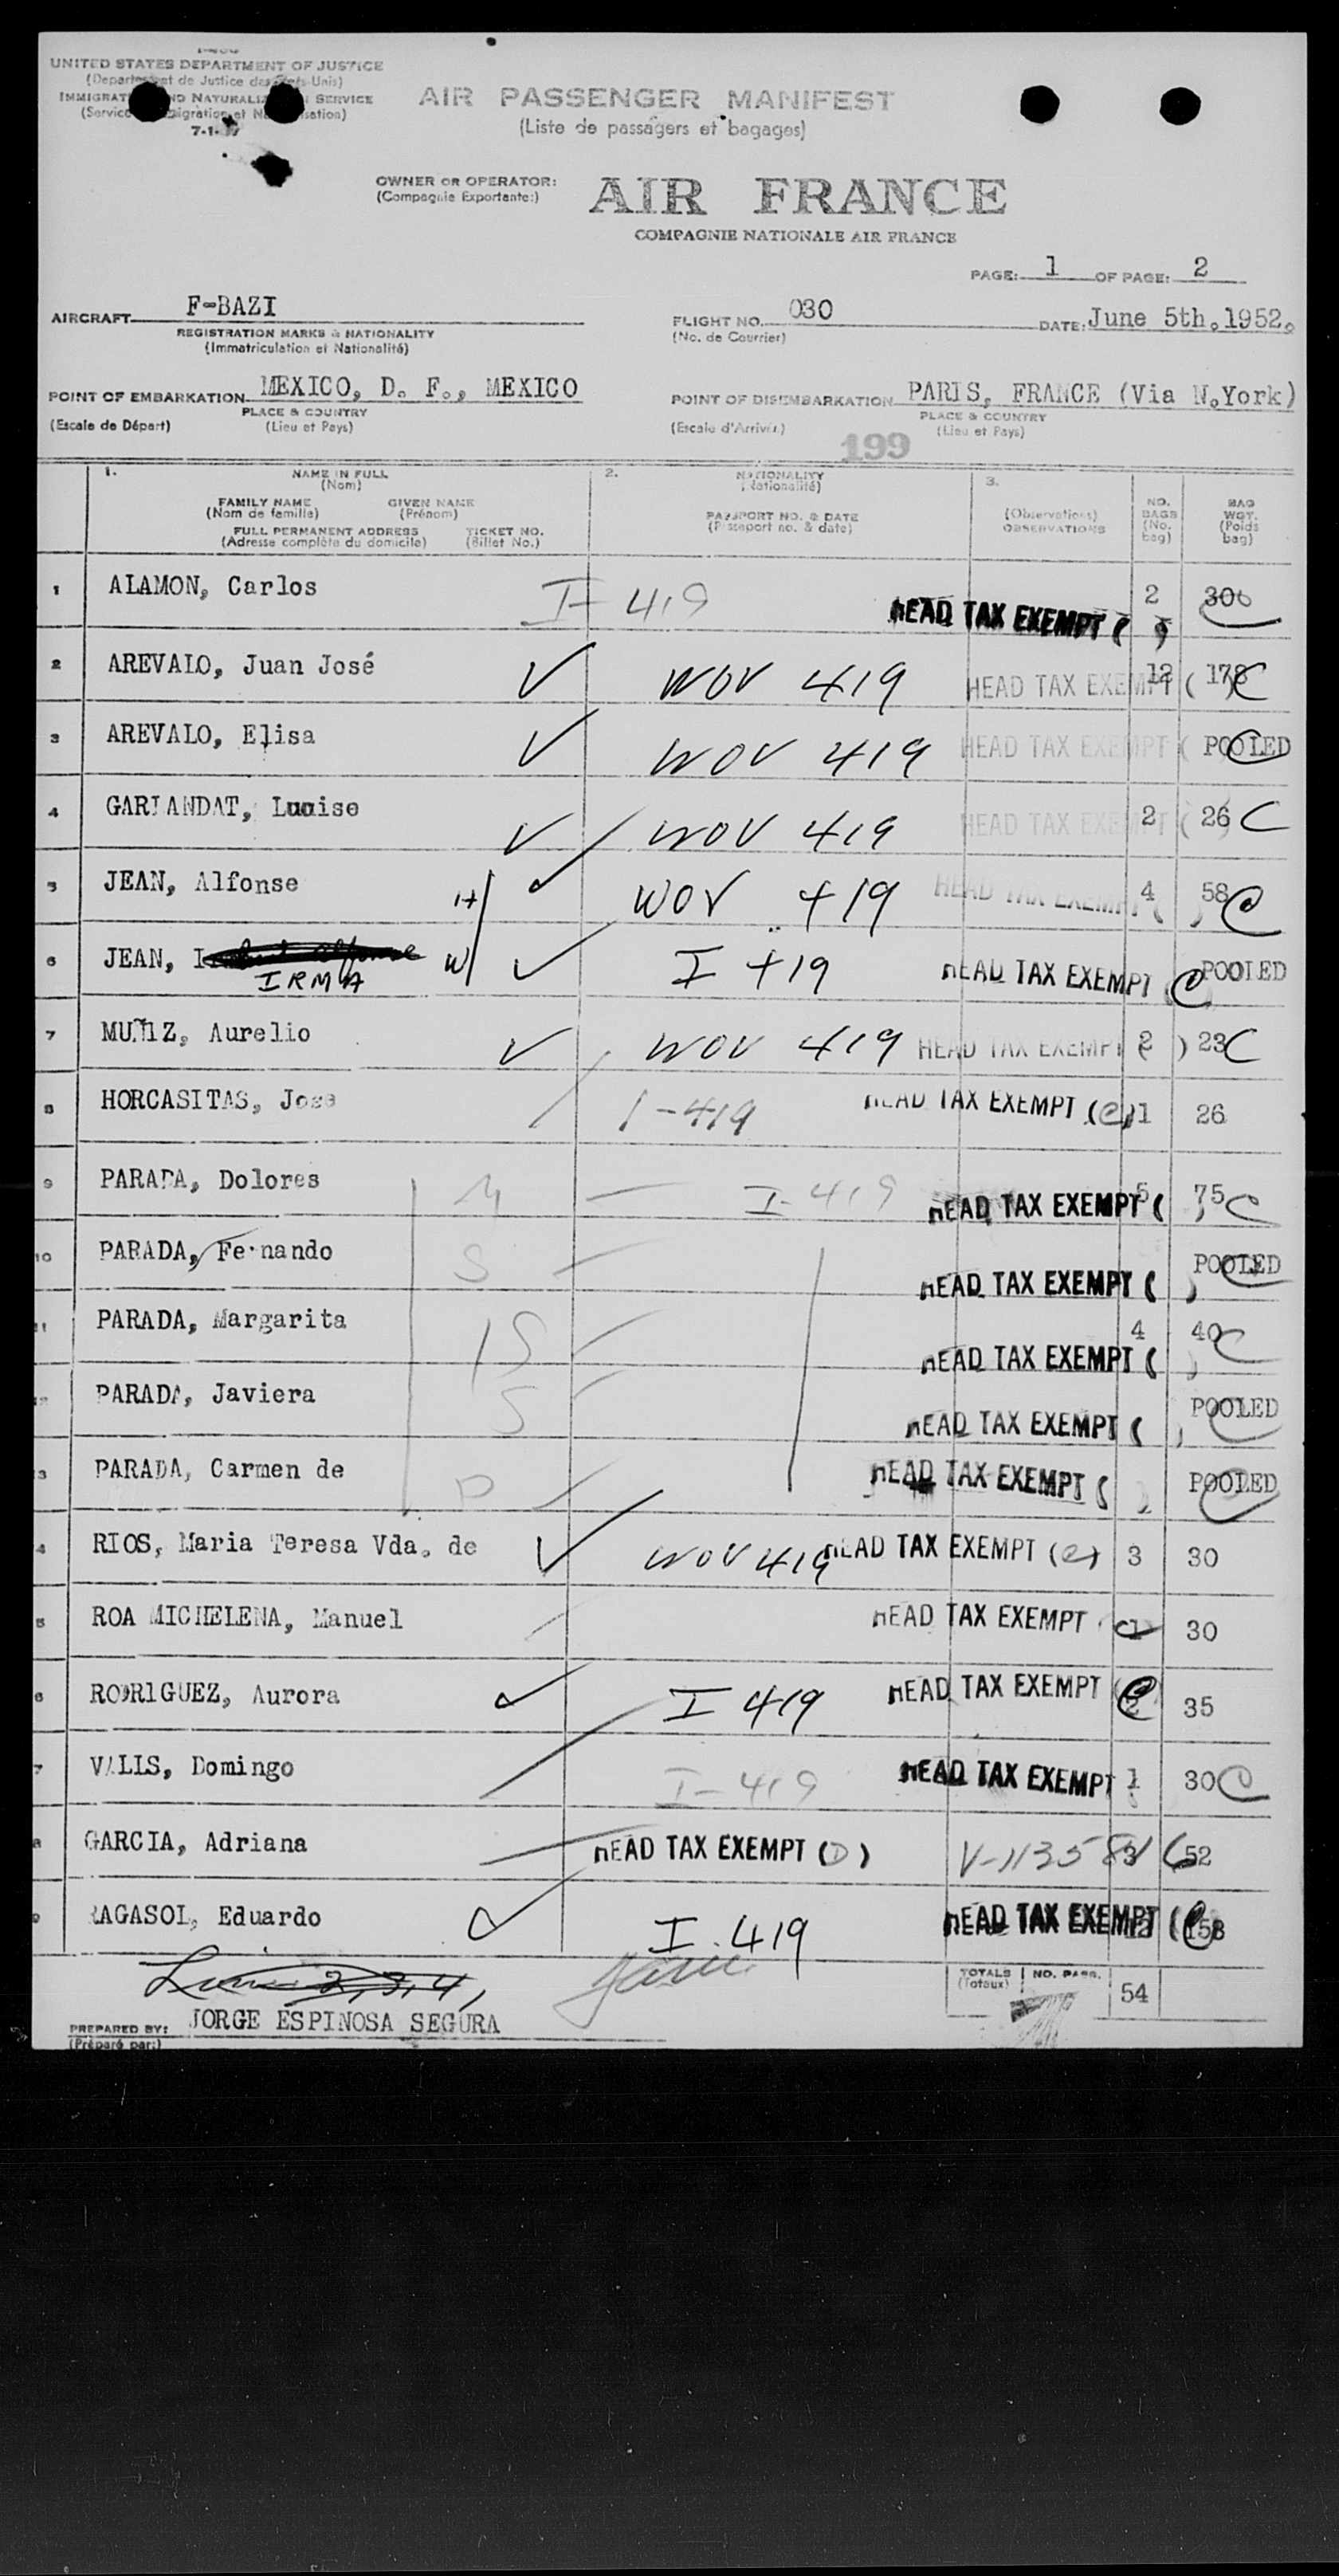 UNITED STATES DEPARTMENT OF JUSTICE
(Department de Justice des Etats-Unis)
IMMIGRATION AND NATURALIZATION SERVICE
7-1-
AIR PASSENGER MANIFEST
(Liste de passagers et bagages)
OWNER OR OPERATOR: AIR FRANCE
(Compagnie Exportante:)
COMPAGNIE NATIONALE AIR FRANCE
PAGE: 1 OF PAGE: 2
AIRCRAFT F-BAZI
REGISTRATION MARKS & NATIONALITY
(Immatriculation et Nationalité)
FLIGHT NO. 030 DATE: June 5th, 1952.
(No. de Courrier)
POINT OF EMBARKATION MEXICO, D. F., MEXICO
PLACE & COUNTRY
(Escale de Départ) (Lieu et Pays)
POINT OF DISEMBARKATION PARIS, FRANCE (Via N.York)
PLACE & COUNTRY
(Escale d'Arrivée) (Lieu et Pays)
199
1. NAME IN FULL
(Nom)
FAMILY NAME GIVEN NAME
(Nom de famille) (Prénom)
FULL PERMANENT ADDRESS TICKET NO.
(Adresse complète du domicile) (Billet No.)
2. NATIONALITY
(Nationalité)
PASSPORT NO. & DATE
(Passeport no. & date)
3.
(Observations)
OBSERVATIONS
NO. BAGS (No. bag)
BAG WGT. (Poids bag)
1 ALAMON, Carlos I-419 HEAD TAX EXEMPT ( ) 2 300
2 AREVALO, Juan José WOV 419 HEAD TAX EXEMPT ( ) 12 178 C
3 AREVALO, Elisa WOV 419 HEAD TAX EXEMPT ( POOLED C
4 GARLANDAT, Luise WOV 419 HEAD TAX EXEMPT ( ) 2 26 C
5 JEAN, Alfonse H WOV 419 HEAD TAX EXEMPT ( ) 4 58 C
6 JEAN, I IRMA W I 419 HEAD TAX EXEMPT C POOLED
7 MUÑIZ, Aurelio WOV 419 HEAD TAX EXEMPT ( ) 2 23 C
8 HORCASITAS, Jose I-419 HEAD TAX EXEMPT (C) 1 26
9 PARADA, Dolores M I-419 HEAD TAX EXEMPT ( ) 5 75 C
10 PARADA, Fernando S HEAD TAX EXEMPT ( ) POOLED
11 PARADA, Margarita S HEAD TAX EXEMPT ( ) 4 40 C
12 PARADA, Javiera S HEAD TAX EXEMPT ( ) POOLED
3 PARADA, Carmen de D HEAD TAX EXEMPT ( ) POOLED
4 RIOS, Maria Teresa Vda. de WOV 419 HEAD TAX EXEMPT (C) 3 30
5 ROA MICHELENA, Manuel HEAD TAX EXEMPT C 1 30
6 RODRIGUEZ, Aurora I 419 HEAD TAX EXEMPT (C) 2 35
7 VALLS, Domingo I-419 HEAD TAX EXEMPT 1 30 C
8 GARCIA, Adriana HEAD TAX EXEMPT (D) 3 52
9 RAGASOL, Eduardo I 419 HEAD TAX EXEMPT (C) 12 158
2, 3, 4,
TOTALS (Totaux) NO. PASS. 54
PREPARED BY: JORGE ESPINOSA SEGURA
(Préparé par:)